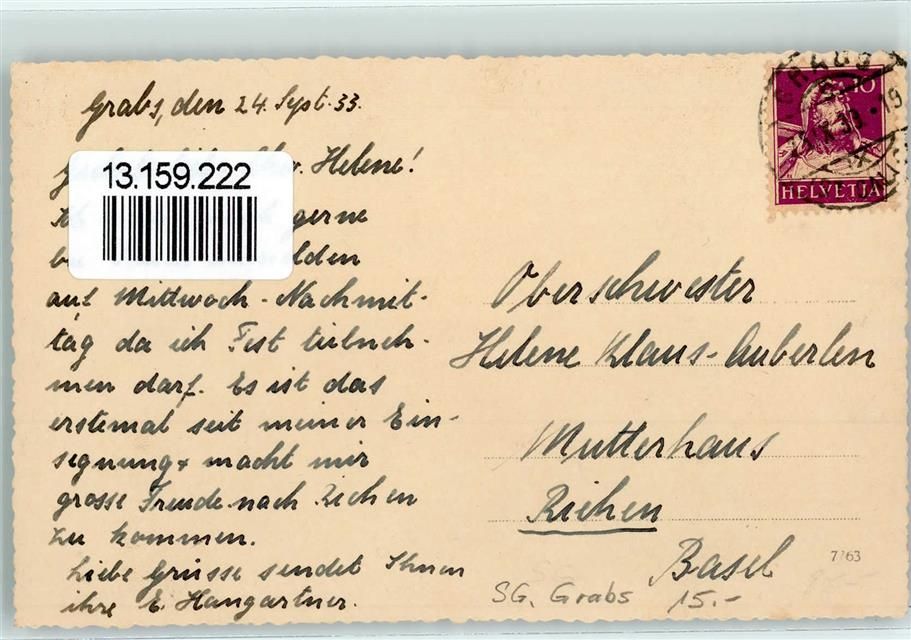 Grabs, den 24. Sept. 33.
Helene!
gerne
lden
auf Mittwoch-Nachmit-
tag da ich Fest teilneh-
men darf. Es ist das
erstemal seit meiner Ein-
segnung & macht mir
grosse Freude nach Riehen
zu kommen.
Liebe Grüsse sendet Ihnen
ihre E. Hangartner.
13.159.222
10
HELVETIA
Oberschwester
Helene Klaus-Auberlen
Mutterhaus
Riehen
Basel
7763
SG. Grabs 15.-